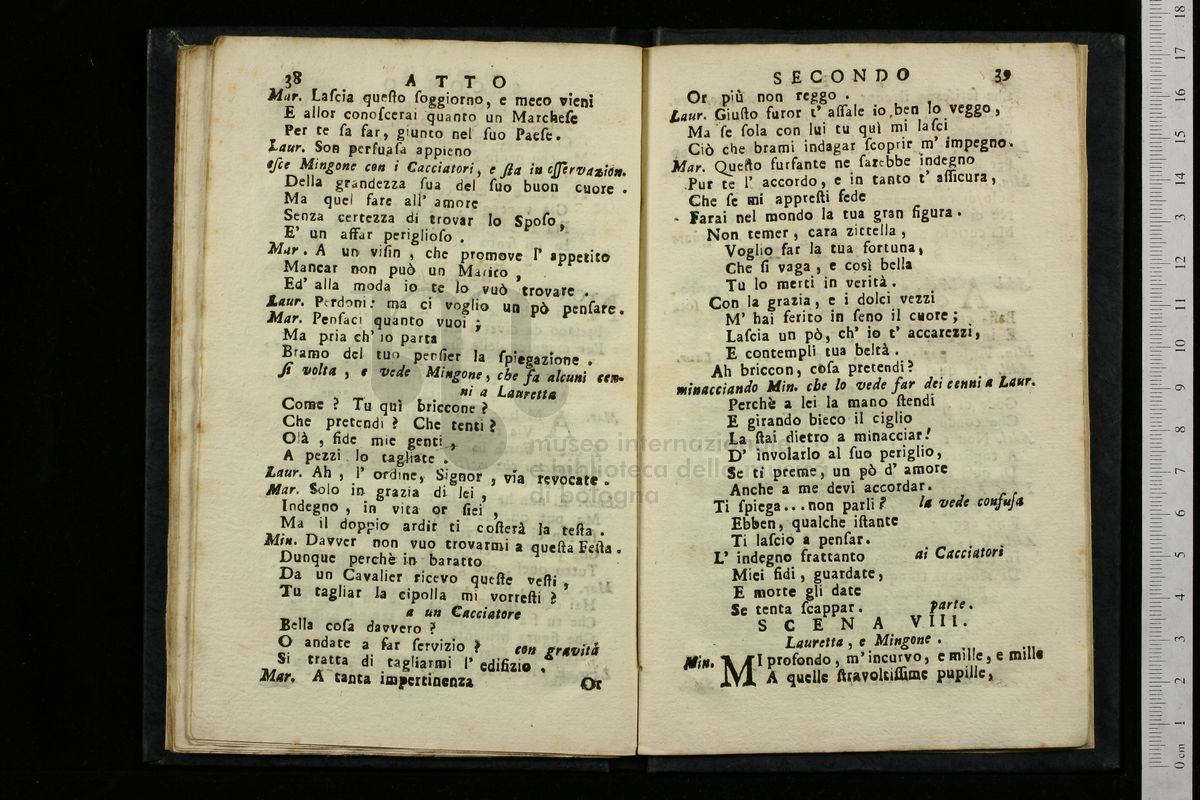 38 ATTO
Mar. Laſcia queſto ſoggiorno, e meco vieni
E allor conoſcerai quanto un Marcheſe
Per te ſa far, giunto nel ſuo Paeſe.
Laur. Son perſuaſa appieno
eſce Mingone con i Cacciatori, e ſta in oſſervazion.
Della grandezza ſua del ſuo buon cuore.
Ma quel fare all' amore
Senza certezza di trovar lo Spoſo,
E' un affar periglioſo.
Mar. A un viſin, che promove l' appetito
Mancar non può un Marito,
Ed' alla moda io te lo vuò trovare.
Laur. Perdoni: ma ci voglio un pò penſare.
Mar. Penſaci quanto vuoi;
Ma pria ch' io parta
Bramo del tuo penſier la ſpiegazione.
ſi volta, e vede Mingone, che fa alcuni cen-
ni a Lauretta
Come? Tu quì briccone?
Che pretendi? Che tenti?
Olà, fide mie genti,
A pezzi lo tagliate.
Laur. Ah, l' ordine, Signor, via revocate.
Mar. Solo in grazia di lei,
Indegno, in vita or ſiei,
Ma il doppio ardir ti coſterà la teſta.
Min. Davver non vuo trovarmi a queſta Feſta.
Dunque perchè in baratto
Da un Cavalier ricevo queſte veſti,
Tu tagliar la cipolla mi vorreſti?
a un Cacciatore
Bella coſa davvero?
O andate a far ſervizio? con gravità
Si tratta di tagliarmi l' edifizio.
Mar. A tanta impertinenza
Or
SECONDO 39
Or più non reggo.
Laur. Giuſto furor t' aſſale io ben lo veggo,
Ma ſe ſola con lui tu quì mi laſci
Ciò che brami indagar ſcoprir m' impegno.
Mar. Queſto furfante ne ſarebbe indegno
Pur te l' accordo, e in tanto t' aſſicura,
Che ſe mi appreſti fede
Farai nel mondo la tua gran figura.
Non temer, cara zittella,
Voglio far la tua fortuna,
Che ſi vaga, e così bella
Tu lo merti in verità.
Con la grazia, e i dolci vezzi
M' hai ferito in ſeno il cuore;
Laſcia un pò, ch' io t' accarezzi,
E contempli tua beltà.
Ah briccon, coſa pretendi?
minacciando Min. che lo vede far dei cenni a Laur.
Perchè a lei la mano ſtendi
E girando bieco il ciglio
La ſtai dietro a minacciar!
D' involarlo al ſuo periglio,
Se ti preme, un pò d' amore
Anche a me devi accordar.
Ti ſpiega... non parli? la vede confuſa
Ebben, qualche iſtante
Ti laſcio a penſar.
L' indegno frattanto ai Cacciatori
Miei fidi, guardate,
E morte gli date
Se tenta ſcappar. parte.
SCENA VIII.
Lauretta, e Mingone.
Min. MI profondo, m' incurvo, e mille, e mille
A quelle ſtravoltiſſime pupille,
museo internazionale
e biblioteca della
di bologna
0 cm 1 2 3 4 5 6 7 8 9 10 11 12 13 14 15 16 17 18